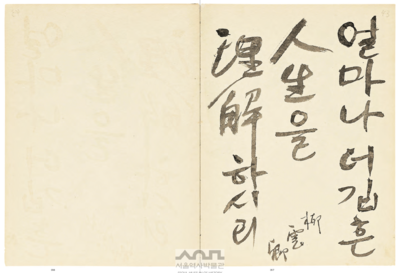 얼마나 더 깁흔
人生을
理解하시리
柳雲卿
서울역사박물관